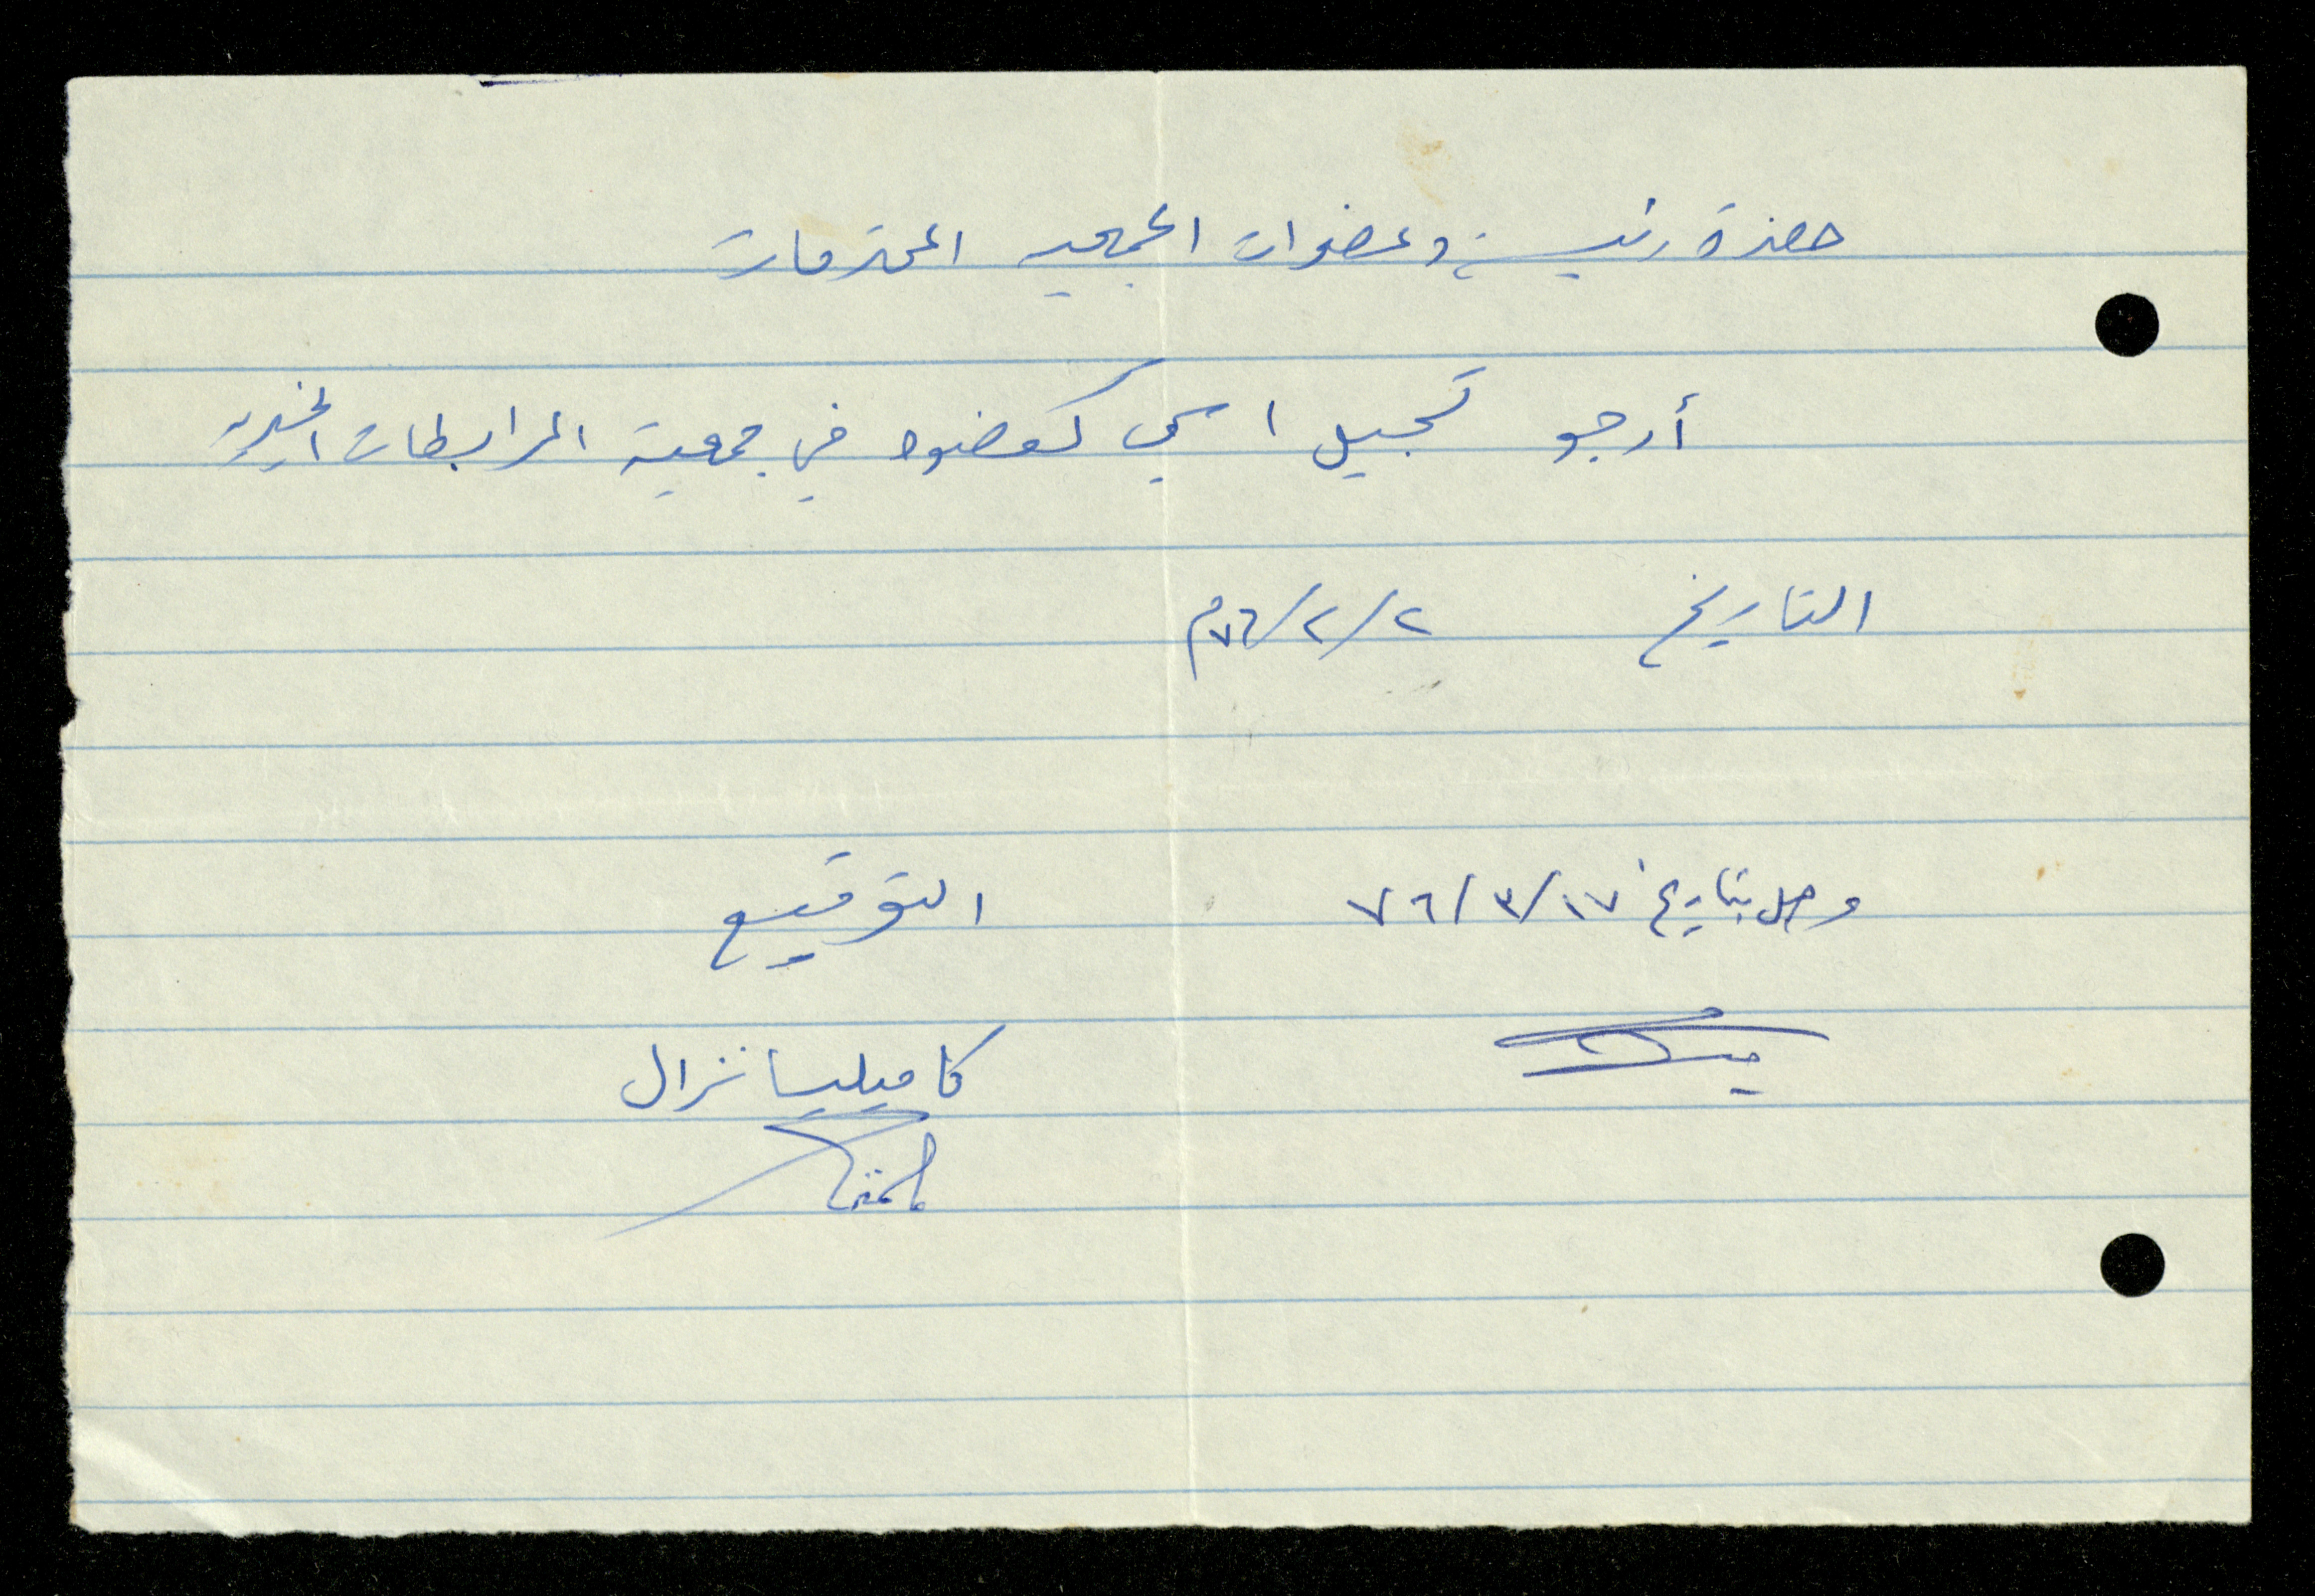 حضرة رئيسة وعضوات الجمعيه المحترمات
أرجو تسجيل اسمي كعضوه في جمعية المرابطات الخيريه
التاريخ ٢/٢/٧٦م
وصل بتاريخ ١٧/٣/٧٦
التوقيع
كاميليا نزال